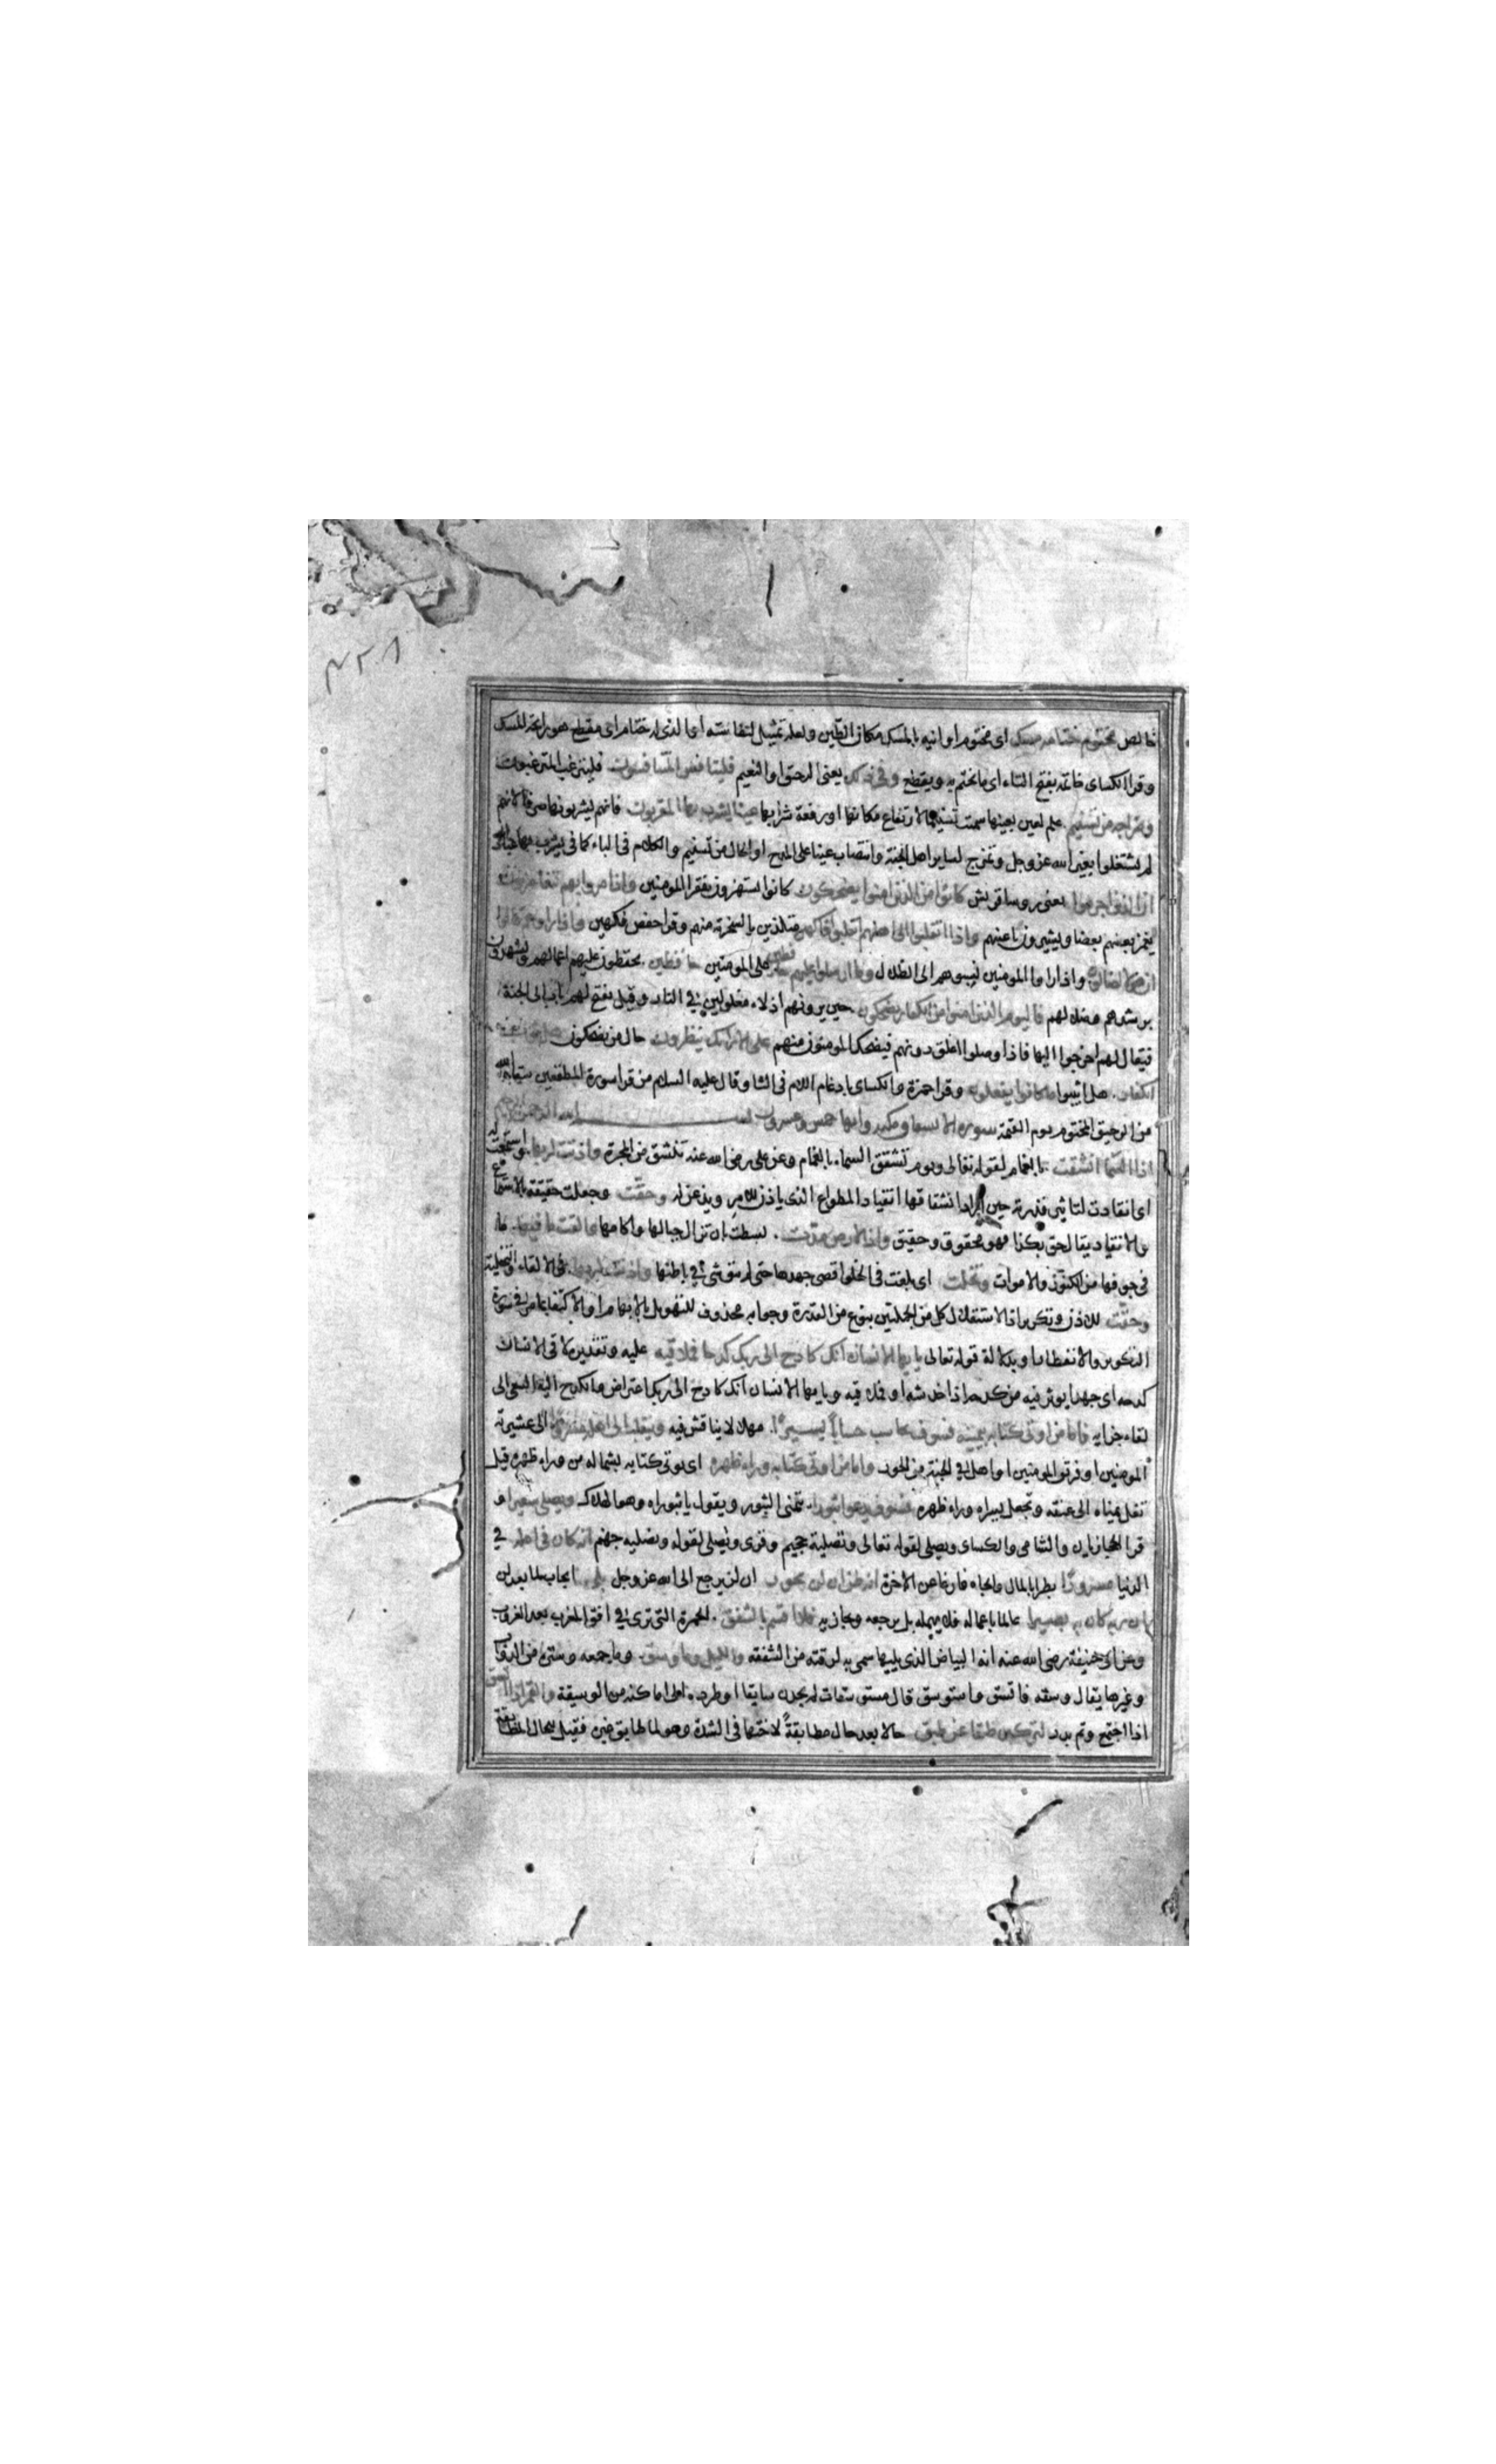 ٤٢٨
خالص مختوم ختامه مسك اى مختوم اوانيه بالمسك مكان الطين ولعله تمثيل لنفاسته اى الذى له ختام اى مقطع هو رايحة المسك
وقرا الكساى خاتمه بفتح التاء اى ما يختم به ويقطع وفى ذلك يعنى الرحيق او النعيم فليتنافس المتنافسون فليرتغب المرتغبون
ومزاجه من تسنيم علم لعين بعينها سميت تسنيما لارتفاع مكانها او رفعة شرابها عينا يشرب بها المقربون فانهم يشربونها صرفا لانهم
لم يشتغلوا بغير الله عز وجل وتمزج لساير اهل الجنة وانتصاب عينا على المدح او الحال من تسنيم والكلام فى الباء كما فى يشرب بها عباد الله
ان الذين اجرموا يعنى روسا قريش كانوا من الذين امنوا يضحكون كانوا يستهزون بفقرا المومنين واذا مروا بهم يتغامزون
يغمز بعضهم بعضا ويشيرون باعينهم واذا انقلبوا الى اهلهم انقلبوا فاكهين متلذذين بالسخرية منهم وقرا حفص فكهين واذا راوهم قالوا
ان هولا لضالون واذا راوا المومنين نسبوهم الى الظلال وما ارسلوا عليهم على المومنين حافظين يحفظون عليهم اعمالهم ويشهدون
برشدهم وضلالهم فاليوم الذين امنوا من الكفار يضحكون حين يرونهم اذلاء مغلولين فى النار وقيل يفتح لهم باب الى الجنة
فيقال لهم اخرجوا اليها فاذا وصلوا اغلق دونهم فيضحك المومنون منهم على الارائك ينظرون حال من يضحكون هل ثوب
الكفار هل اثيبوا ما كانوا يفعلون وقرا حمزة والكساى بادغام اللام فى الثا وقال عليه السلام من قرا سورة المطففين سقاه الله
من الرحيق المختوم يوم القيمة سورة الانشقاق مكية وايها خمس وعشرون بسم الله الرحمن الرحيم
اذا السما انشقت بالغمام لقوله تعالى ويوم تشقق السماء بالغمام وعن على رضى الله عنه تنشق من المجرة واذنت لربها واستمعت له
اى انقادت لتاثير قدرته حين اراد انشقاقها انقياد المطواع الذى ياذن للامر ويذعن له وحقت وجعلت حقيقة بالاستماع
والانقياد يقال حق بكذا فهو محقوق وحقيق واذا الارض مدت بسطت بان تزال جبالها واكامها والقت ما فيها ما
فى جوفها من الكنوز والاموات وتخلت اى بلغت فى الخلو اقصى جهدها حتى لم يبق شئ فى باطنها واذنت لربها فى الالقاء والتخلية
وحقت للاذن وتكرير اذا لاستقلال كل من الجملتين بنوع من القدرة وجوابه محذوف للتهويل بالابهام او الاكتفا بما مر فى سورة
التكوير والانفطار او بدلالة قوله تعالى يا ايها الانسان انك كادح الى ربك كدحا فملاقيه عليه وتقديره لاقى الانسان
كدحه اى جهدا يوثر فيه من كدحه اذا خدشه او فملاقيه ويا ايها الانسان انك كادح الى ربك اعتراض والكدح اليه السعى الى
لقاء جزايه فاما من اوتى كتابه بيمينه فسوف يحاسب حسابا يسيرا سهلا لا يناقش فيه وينقلب الى اهله مسرورا الى عشيرته
المومنين او فريق المومنين او اهله فى الجنة من الحور واما من اوتى كتابه وراء ظهره اى يوتى كتابه بشماله من وراء ظهره قيل
تغل يمناه الى عنقه وتجعل يسراه وراء ظهره فسوف يدعوا ثبورا يتمنى الثبور ويقول يا ثبوراه وهو الهلاك ويصلى سعيرا و
قرا الحجازيان والشامى والكساى ويصلى لقوله تعالى وتصلية جحيم وقرى ويصلى لقوله ونصليه جهنم انه كان فى اهله فى
الدنيا مسرورا بطرا بالمال والجاه فارغا عن الاخرة انه ظن ان لن يحور ان لن يرجع الى الله عز وجل بلى ايجاب لما بعد لن
ان ربه كان به بصيرا عالما باعماله فلا يهمله بل يرجعه ويجازيه فلا اقسم بالشفق الحمرة التى ترى فى افق المغرب بعد الغروب
وعن ابى حنيفة رضى الله عنه انه البياض الذى يليها سمى به لرقته من الشفقه والليل وما وسق وما جمعه وستره من الدواب
وغيرها يقال وسقه فاتسق واستوسق قال مستوسقات لم يجدن سايقا او طرده الى اماكنه من الوسيقة والقمر اذا اتسق
اذا اجتمع وتم بدر لتركبن طبقا عن طبق حالا بعد حال مطابقة لاختها فى الشدة وهو لما طابق غيره فقيل للحال المطابقة